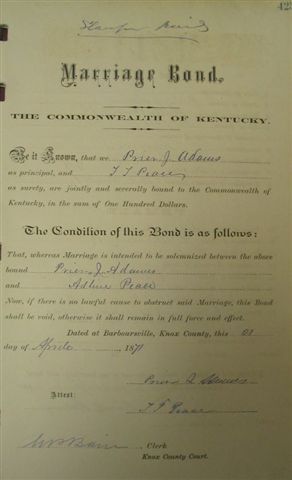 42
Marriage Bond.
THE COMMONWEALTH OF KENTUCKY.
Be it Known, that we Prier J Adams
as principal, and T T Peace
as surety, are jointly and severally bound to the Commonwealth of
Kentucky, in the sum of One Hundred Dollars.
The Condition of this Bond is as follows:
That, whereas Marriage is intended to be solemnized between the above
bound Prier J. Adams
and Adline Peace
Now, if there is no lawful cause to obstruct said Marriage, this Bond
shall be void, otherwise it shall remain in full force and effect.
Dated at Barboursville, Knox County, this
day of 187
Prier J Adams
Attest: T T Peace
Clerk
Knox County Court.